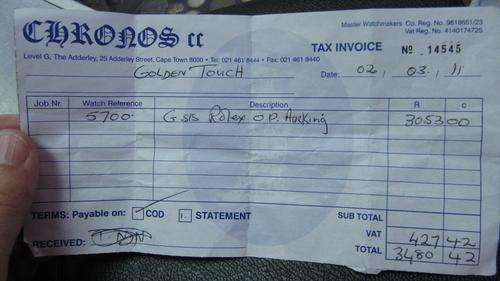 CHRONOS cc
Master Watchmakers Co. Reg. No. 9618651/23
Vat Reg. No. 4140174725
TAX INVOICE No. 14545
Level G, The Adderley, 25 Adderley Street, Cape Town 8000 • Tel: 021 461 8444 • Fax: 021 461 8440
GOLDEN TOUCH
Date: 02, 03, 11
Job Nr. Watch Reference Description R c
5700 G S/S Rolex O.P. 3053 00
TERMS: Payable on: COD STATEMENT
SUB TOTAL
VAT 427 42
RECEIVED:
TOTAL 3480 42